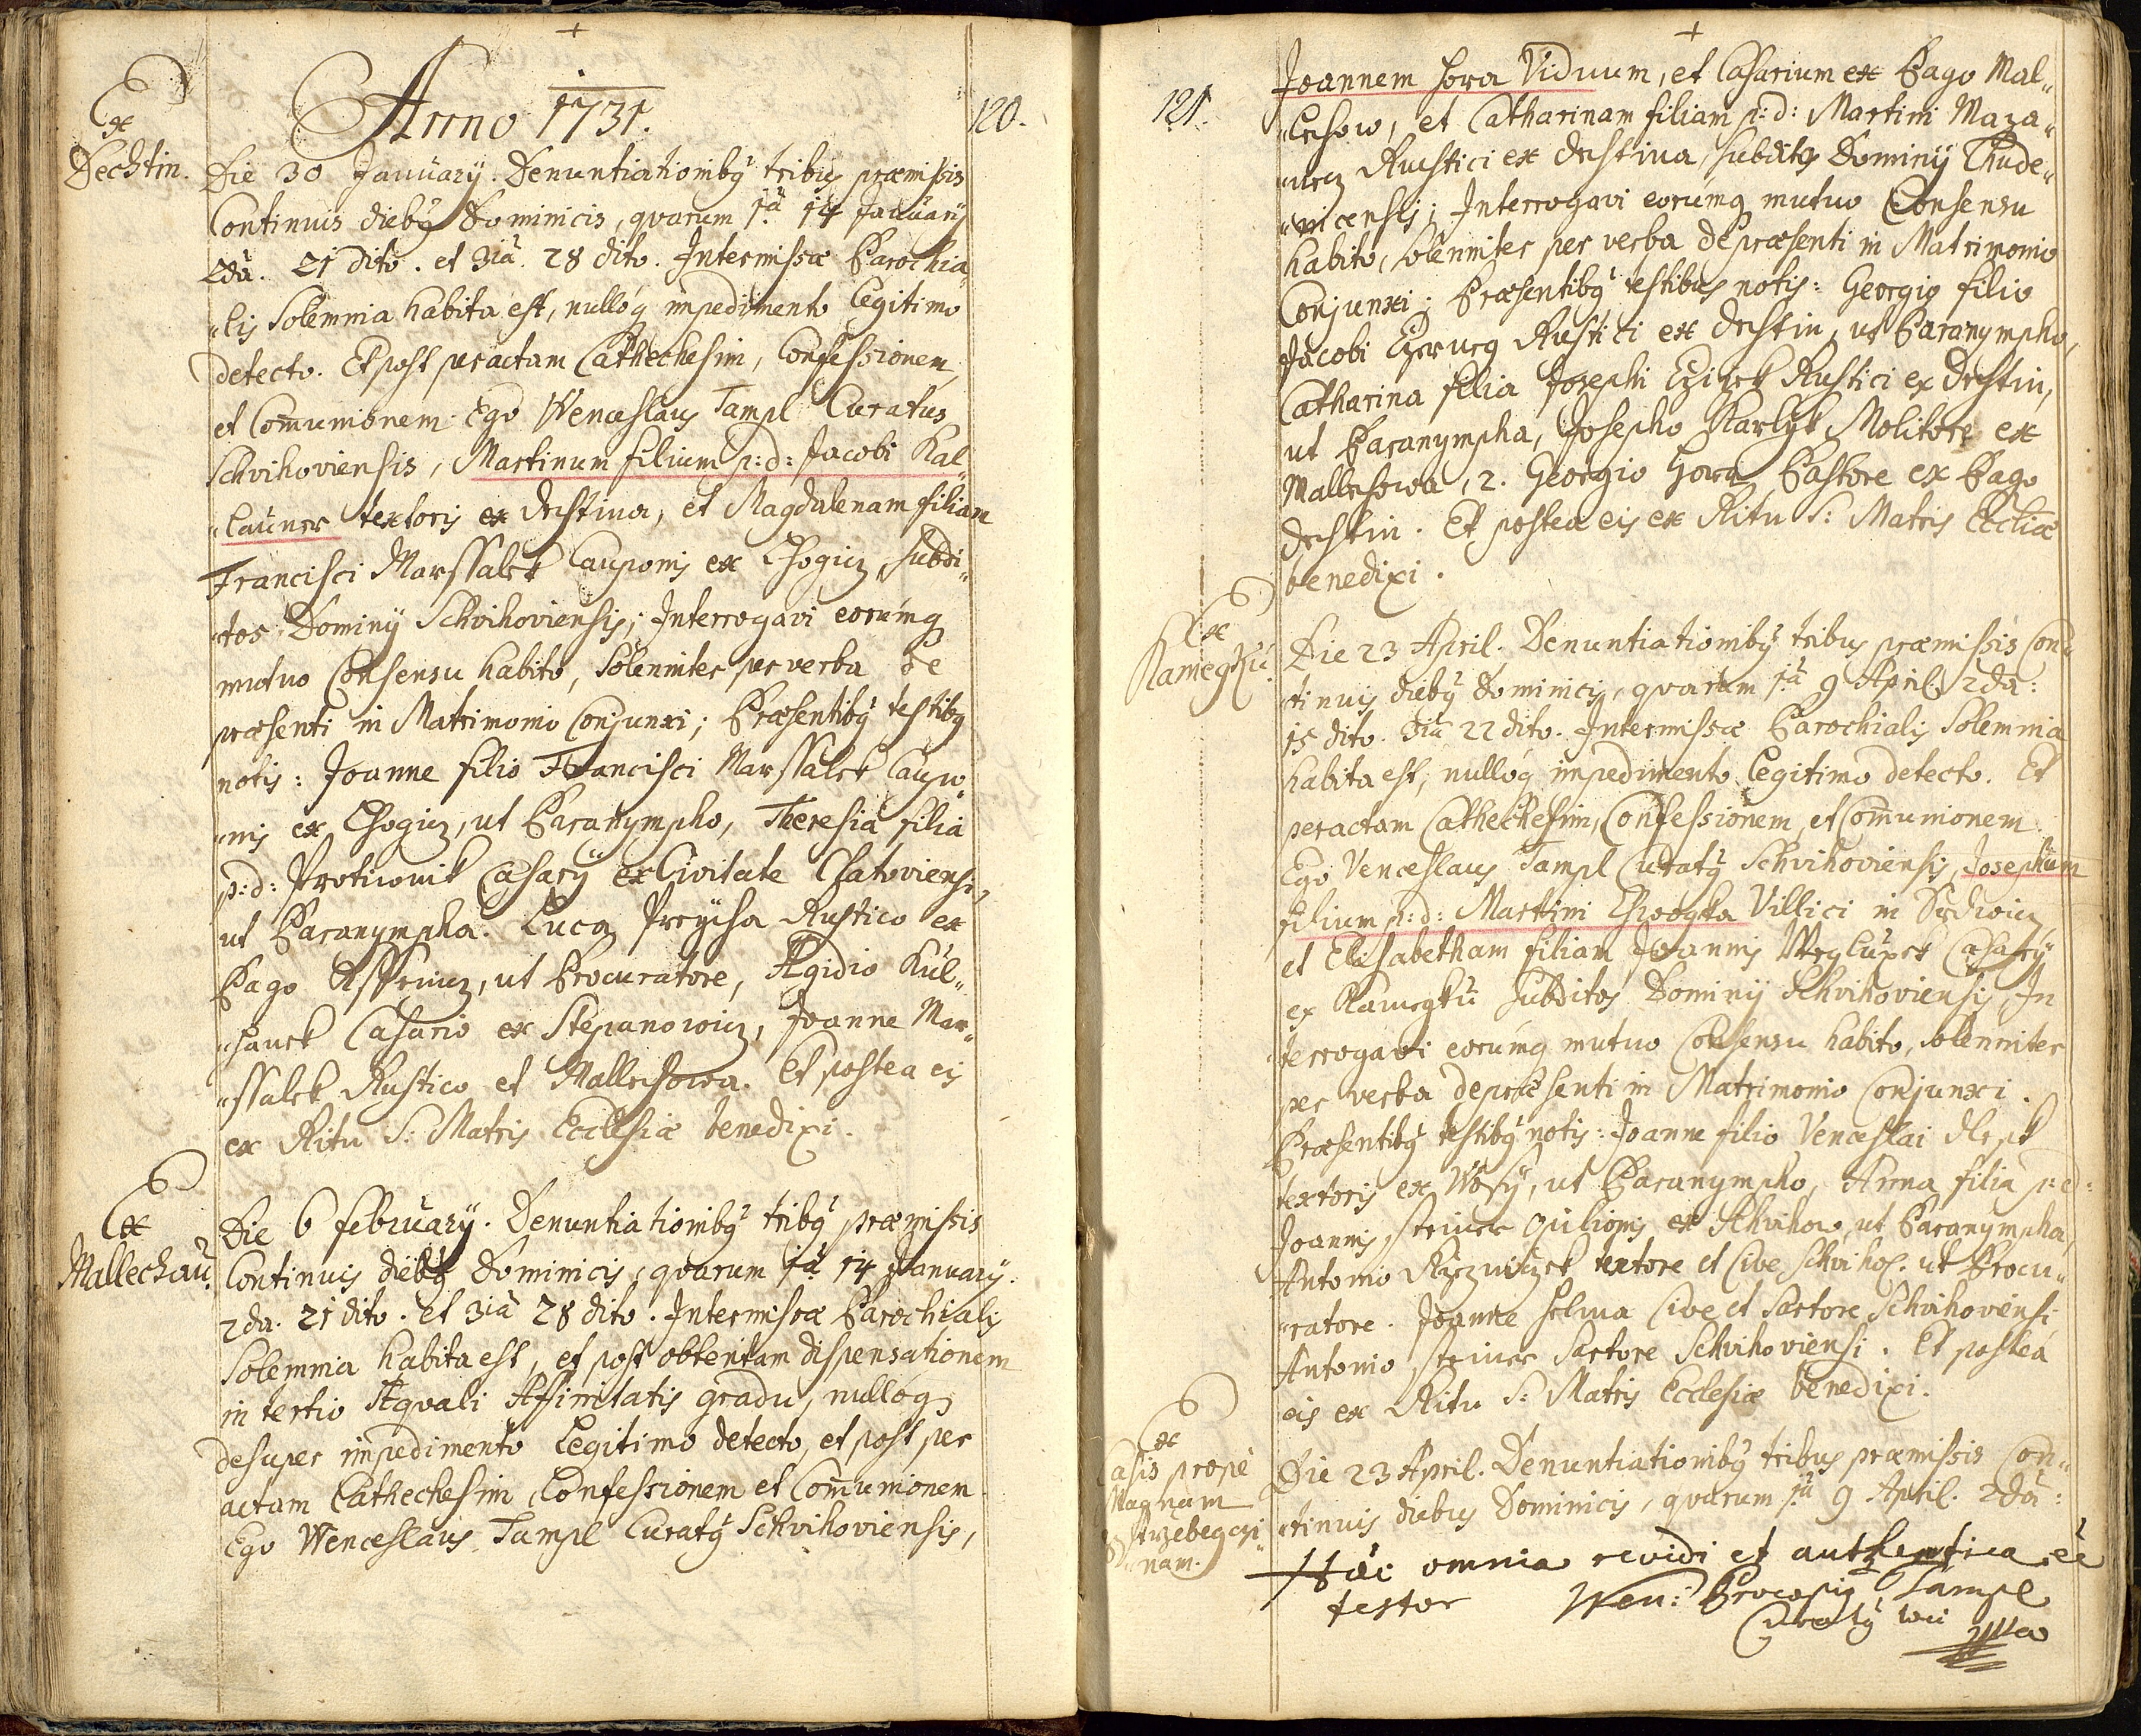 Ex
Dechtin.
Anno 1731.
120.
Die 30 January. Denuntiationibꝰ tribus præmissis
Continuis diebꝰ Dominicis, qvarum 1ã 14 January
2da. 21 dito. et 3ia. 28 dito. Intermissæ Parochia„
„lis Solemnia habita est, nulloq impedimento legitimo
detecto. Et post peractam Cathechesim, Confessionem,
et Com̄unionem. Ego Wenceslaus Tampl Curatus
Schvihoviensis, Martinum filium p: d: Jacobi Kal„
„launer textoris ex Destina, et Magdalenam filiam
Francisci Marssalek Cauponis ex Chogicz, subdi„
„tos Dominij Schvihoviensis; Interrogavi eorumq
mutuo Consensu habito, Solenniter per verba de
præsenti in Matrimonio Conjunxi; Præsentibꝰ testibꝰ
notis: Joanne filio Francisci Marssalek Caupo„
„nis ex Chogicz, ut Paranympho, Theresia filia
p: d: Protiwnik Casarij ex Civitate Clatoviensi,
ut Paranympha. Luca Preycha Rustico ex
Pago Assenicz, ut Procuratore, Ægidio Kul„
„hanek Casario ex Stepanowicz, Joanne Mar„
„ssalek Rustico et Mallechowa. Et postea eis
ex Ritu S: Matris Ecclesiæ benedixi.
Ex
Mallechau.
Die 6 February. Denuntiationibꝰ tribꝰ præmissis
Continuis diebꝰ Dominicis, qvarum 1ã 14 January.
2da. 21 dito. et 3ia 28 dito. Intermissæ Parochialis
Solemnia habita est, et post obtentam dispensationem
in tertio Æqvali Affinitatis gradu, nulloq
desuper impedimento legitimo detecto, et post per
actam Cathechesim, Confessionem et Com̄unionem
Ego Wenceslaus Tampl Curatꝰ Schvihoviensis,
121.
Joannem Hora Viduum, et Casarium ex Pago Mal„
„lechow, et Catharinam filiam p: d: Martini Maza„
„necz Rustici ex Destina, subditos Dominij Chude„
„nicensis; Interrogavi eorumq mutuo Consensu
habito, solenniter per verba de præsenti in Matrimonio
Conjunxi; Præsentibꝰ testibus notis: Georgio filio
Jacobi Rustici ex Destin, ut Paranympho,
Catharina filia Josephi Rustici ex Destin,
ut Paranympha, Josepho Karlyk Molitore ex
Mallechowa, 2. Georgio Hora Pastore ex Pago
Destin. Et postea eis ex Ritu S: Matris Eccliæ
benedixi.
Ex
Kamegku.
Die 23 April. Denuntiationibꝰ tribus præmissis Con„
„tinuis diebꝰ Dominicis, qvarum 1ã 9 April. 2da:
15 dito. 3ia 22 dito. Intermissæ Parochialis Solemnia
habita est, nulloq impedimento legitimo detecto. Et
peractam Cathechesim, Confessionem, et Com̄unionem.
Ego Venceslaus Tampl Curatꝰ Schvihoviensis, Josephum
filium p: d: Martini Chwogka Villici in
et Elisabetham filiam Joannis Casarij
ex Kamegku subditos Dominij Schvihoviensis, In
„terrogavi eorumq mutuo Consensu habito, solenniter
per verba de præsenti in Matrimonio Conjunxi.
Præsentibꝰ testibꝰ notis: Joanne filio Venceslai
textoris ex Wosy, ut Paranympho, Anna filia p: d:
Joannis Steiner opilionis ex Schvihow, ut Paranympha,
Antonio textore et Cive Schvihov. ut Procu„
„ratore. Joanne Helma Cive et Sartore Schvihoviensi
Antonio Steiner Sartore Schvihoviensi. Et postea
eis ex Ritu S: Matris Ecclesiæ benedixi.
Ex
Casis prope
Magnam
nam.
Die 23 April. Denuntiationibꝰ tribus præmissis Con„
„tinuis diebus Dominicis, qvarum 1ã 9 April. 2da:
Hæc omnia revidi et authentica eē
testor Wen: Procopiꝰ Tampl
Curatꝰ loci mpa